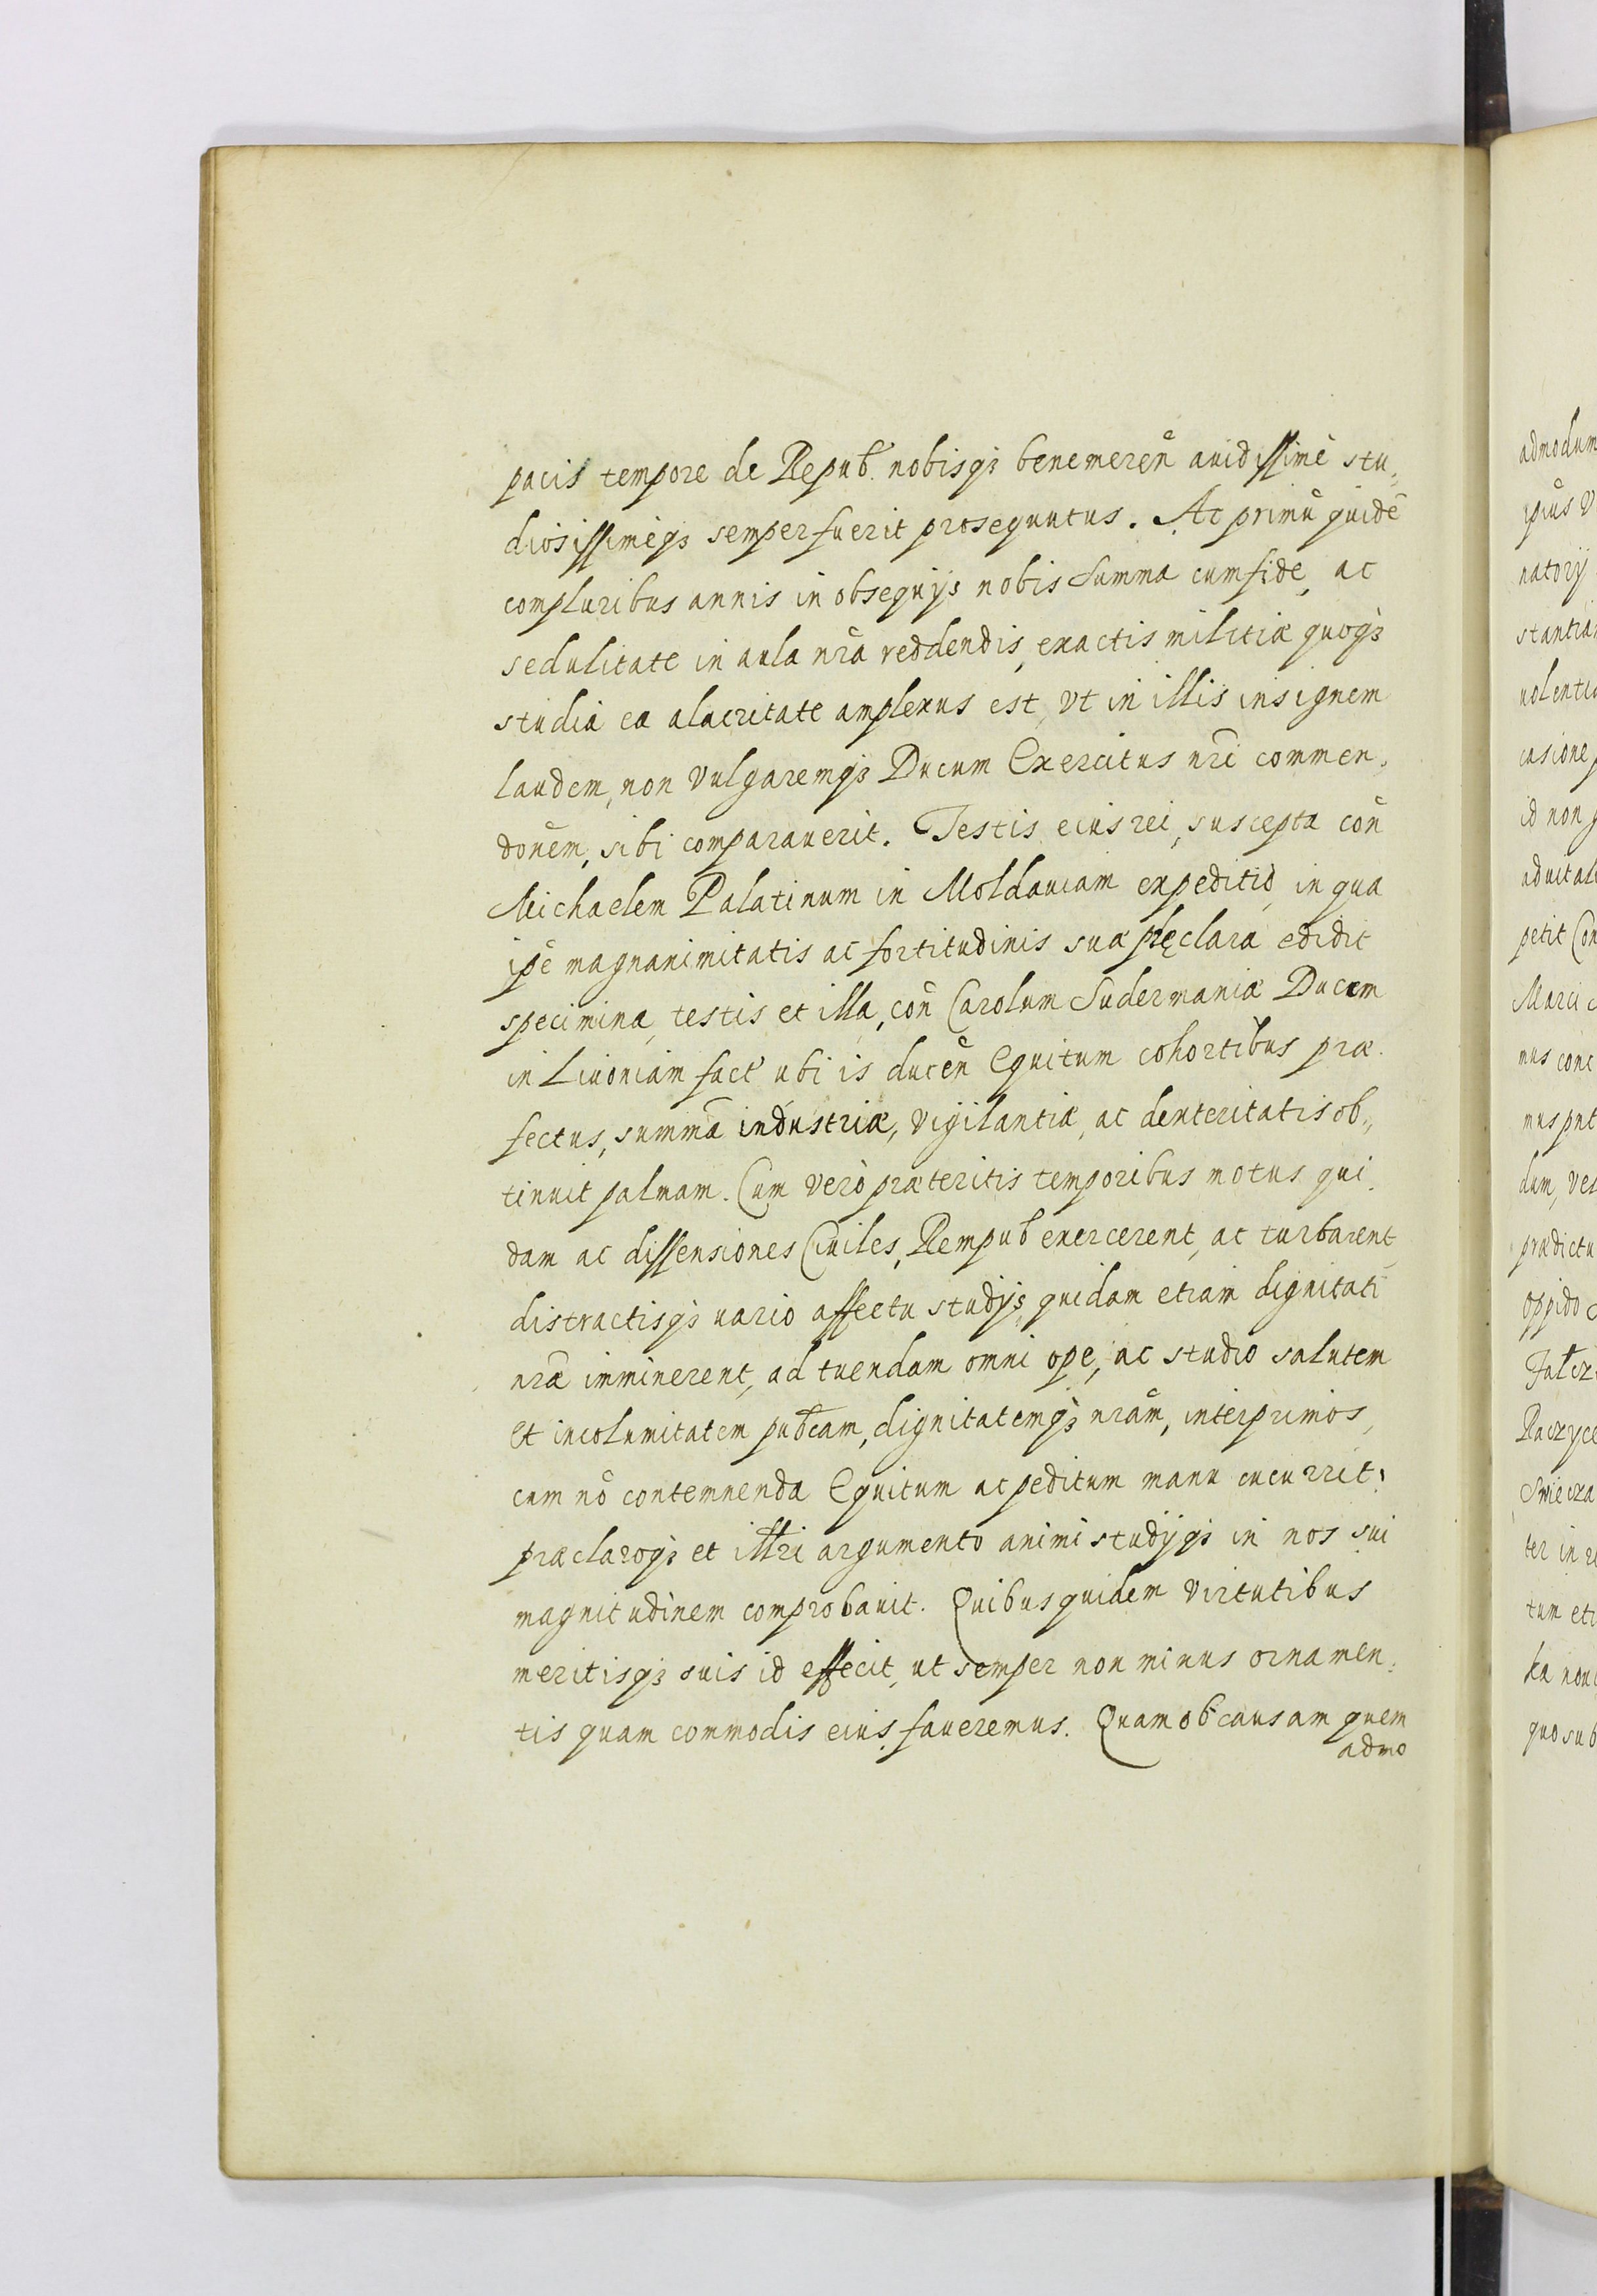 pacis tempore de Repub. nobisqȝ benemereñ auidissimè stu„
diosissimeqȝ semper fuerit prosequutus. Ac primū quidē
compluribus annis in obsequijs nobis Summa cum fide, ac
sedulitate in aula nrã reddendis, exactis militiæ quoqȝ
studia ea alacritate amplexus est, vt in illis insignem
laudem, non vulgaremqȝ Ducum Exercitus nrĩ commen„
doñem, sibi comparauerit. Testis eius rei, suscepta coñ
Michaelem Palatinum in Moldauiam expeditio, in qua
ipẽ magnanimitatis ac fortitudinis suæ pręclara edidit
specimina, testis et illa, coñ Carolum Sudermaniæ Ducem
in Liuoniam fact' ubi is duceñ Equitum cohortibus præ„
fectus, summã industriæ, vigilantiæ, ac dexteritatis ob„
tinuit palmam. Cum verò præteritis temporibus motus qui„
dam ac dissensiones Ciuiles, Rempub exercerent, ac turbarent,
distractisqȝ uario affectu studijs, quidam etiam dignitati
nræ̃ imminerent, ad tuendam omni ope, ac studio salutem
et incolumitatem pubcam, dignitatemqȝ nrãm, inter primos,
cum nõ contemnenda Equitum ac peditum manu cucurrit,
præclaroqȝ et illri argumento animi studijqȝ in nos sui
magnitudinem comprobauit. Quibus quidem virtutibus
meritisqȝ suis id effecit, ut semper non minus ornamen„
tis quam commodis eius faueremus. Quam ob causam quem
admo
admodum
ipius V
natorij
stantia
uolentia
casione p
id non
aduital
petit Con
Marci
mus conc
mus put
dum, ve
prædictu
oppido
Falcz
Raczyce
Swiecza
ter in re
tum eti
ka noui
quo sub